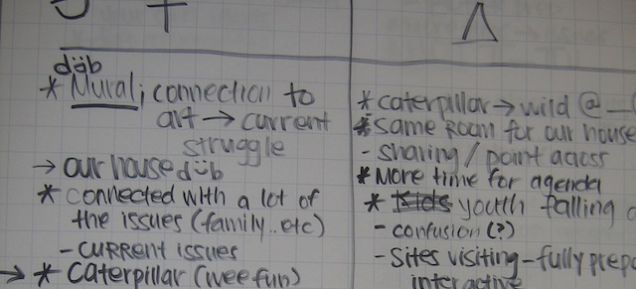 +
düb
* Mural; connection to
art → current
struggle
→ our house düb
* connected with a lot of
the issues (family..etc)
- current issues
→ * caterpillar (wee fun)
Δ
* caterpillar → wild @
* same room for our house
- sharing / point across
* More time for agenda
* Kids youth falling
- confusion (?)
- Sites visiting - fully
interactive